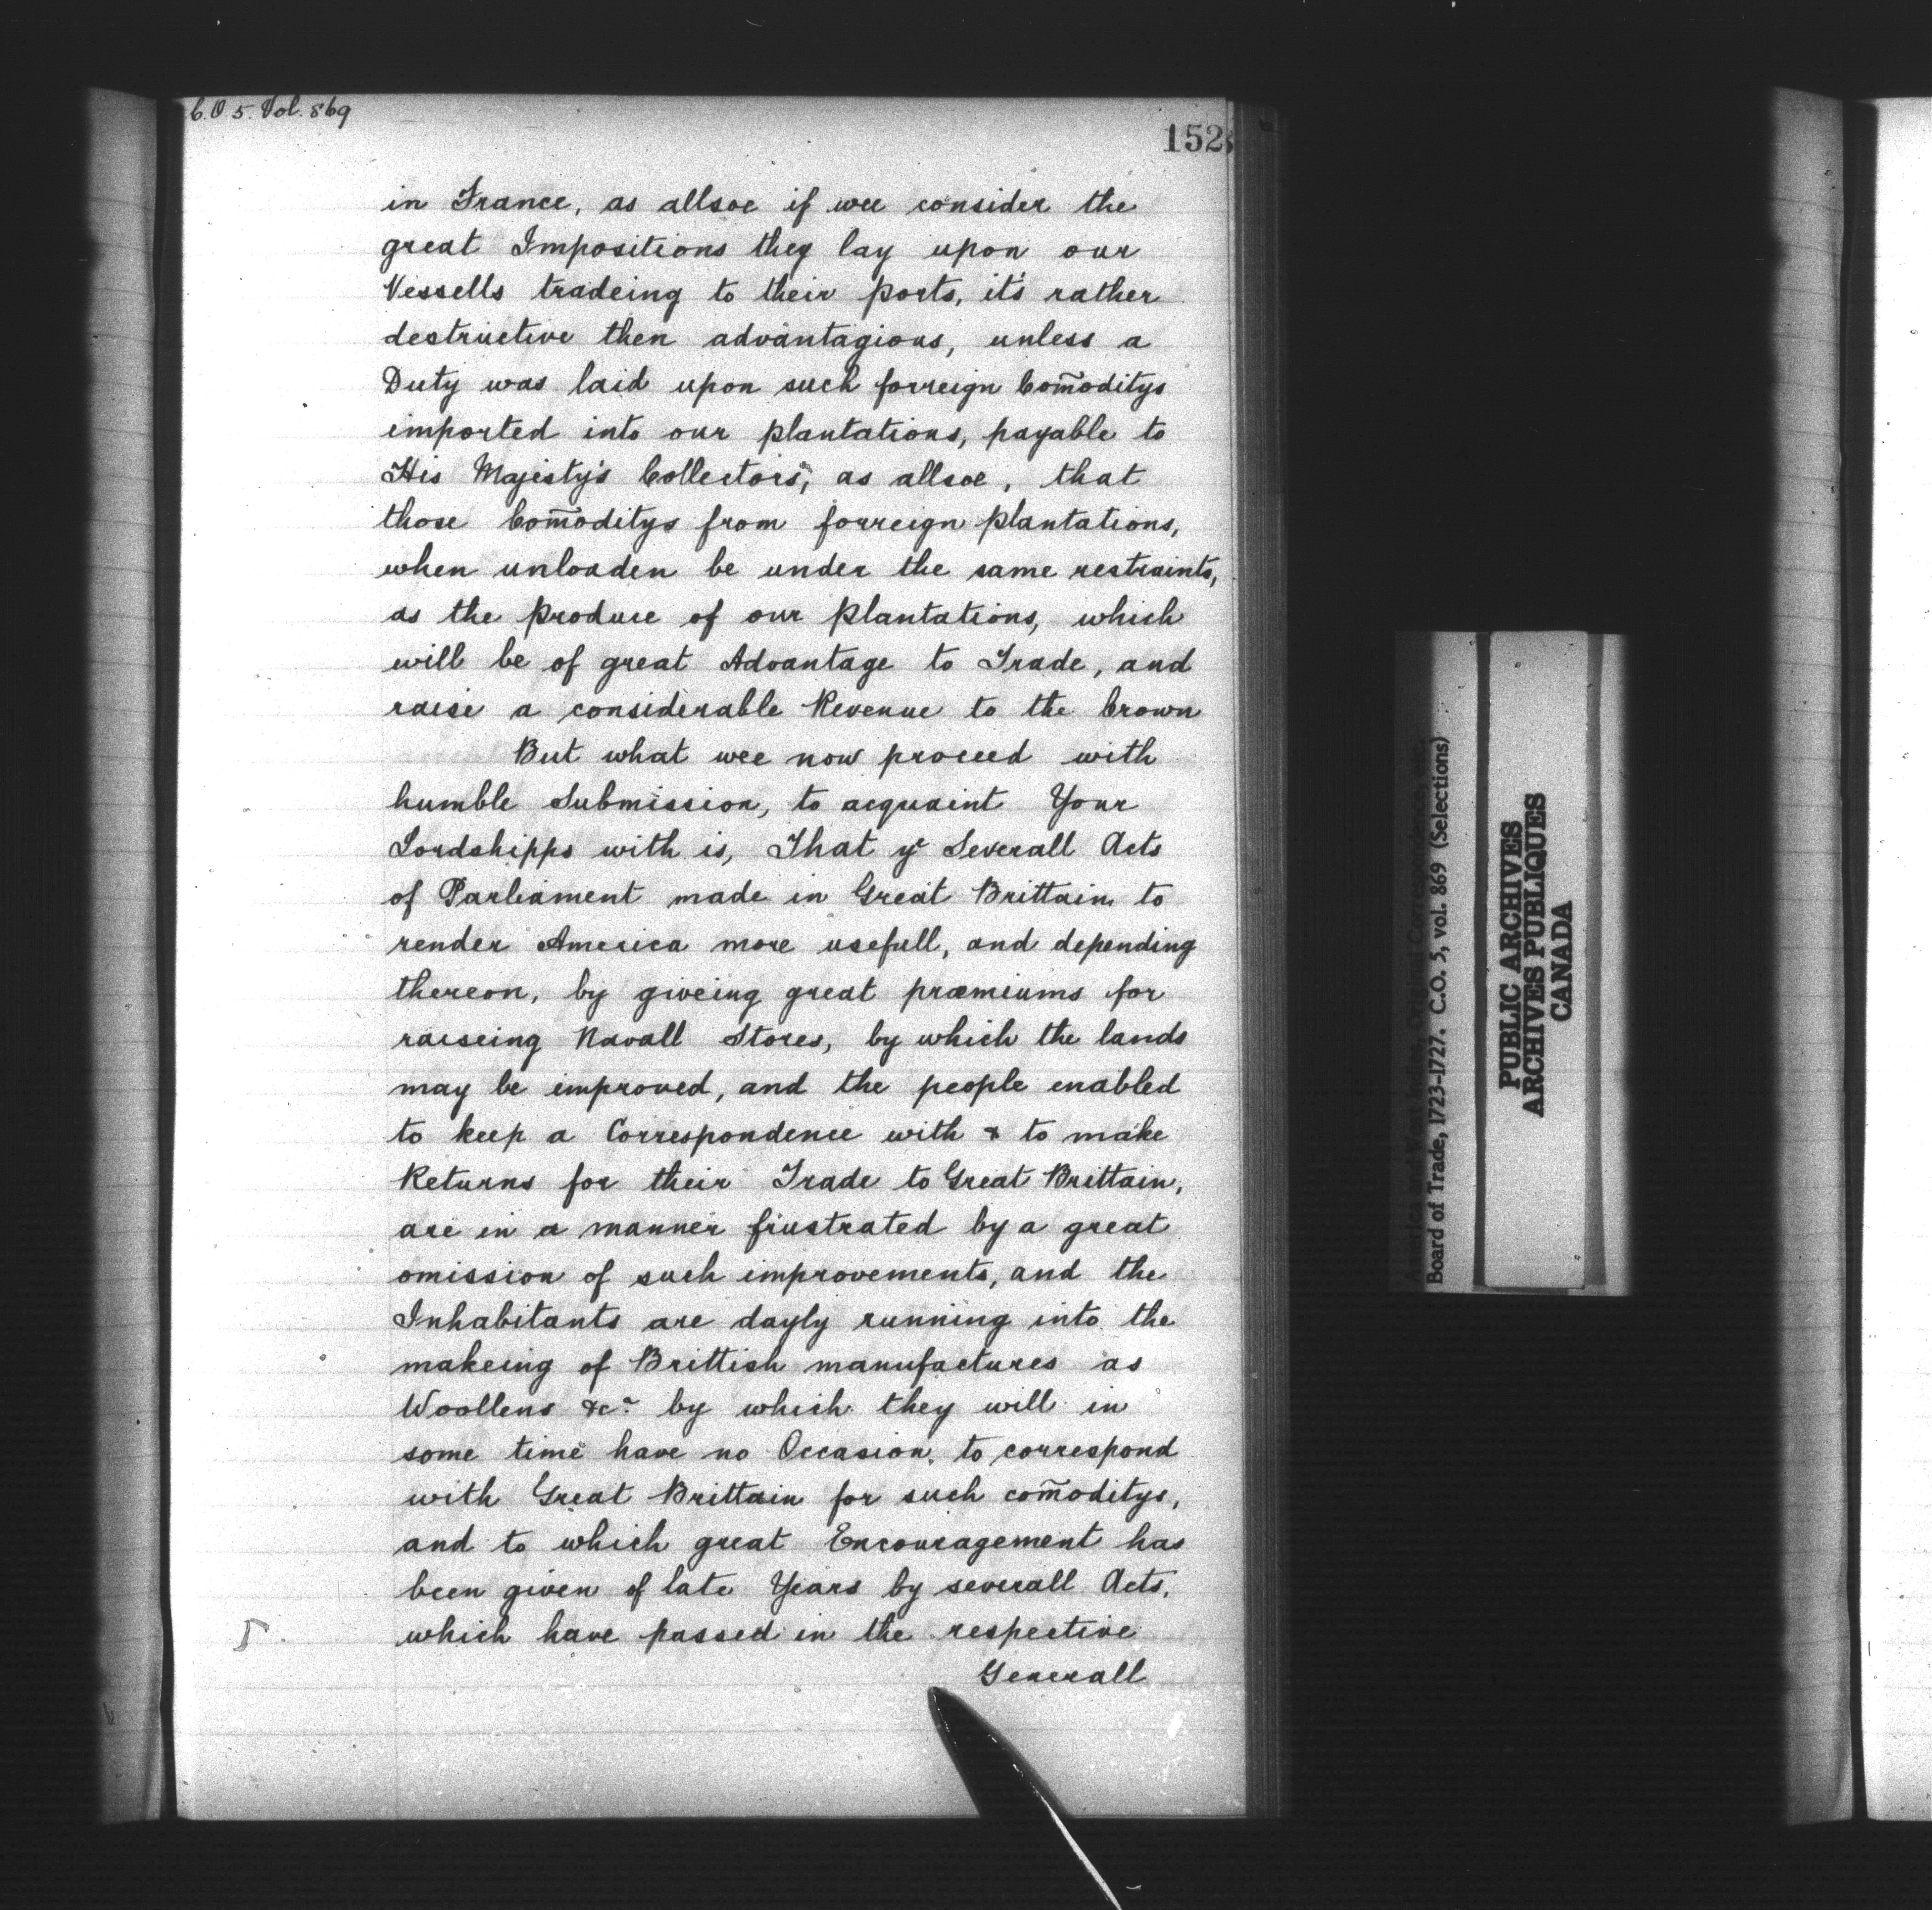 C.O 5. Vol. 869
152
in France, as allsoe if wee consider the
great Impositions they lay upon our
Vessells tradeing to their ports, it's rather
destructive then advantagious, unless a
Duty was laid upon such forreign Com̄oditys
imported into our plantations, payable to
His Majesty's Collectors, as allsoe, that
those Com̄oditys from forreign plantations,
when unloaden be under the same restraints,
as the produce of our plantations, which
will be of great Advantage to Trade, and
raise a considerable Revenue to the Crown
But what wee now proceed with
humble Submission, to acquaint Your
Lordshipps with is, That ye Severall Acts
of Parliament made in Great Brittain to
render America more usefull, and depending
thereon, by giveing great præmiums for
raiseing Navall Stores, by which the lands
may be improved, and the people enabled
to keep a Correspondence with & to make
Returns for their Trade to Great Brittain,
are in a manner frustrated by a great
omission of such improvements, and the
Inhabitants are dayly running into the
makeing of Brittish manufactures as
Woollens &ca by which they will in
some time have no Occasion, to correspond
with Great Brittain for such com̄oditys,
and to which great Encouragement has
been given of late Years by severall Acts,
which have passed in the respective
Generall
America and West Indies, Original Correspondence, etc.
Board of Trade, 1723-1727. C.O. 5, vol. 869 (Selections)
PUBLIC ARCHIVES
ARCHIVES PUBLIQUES
CANADA